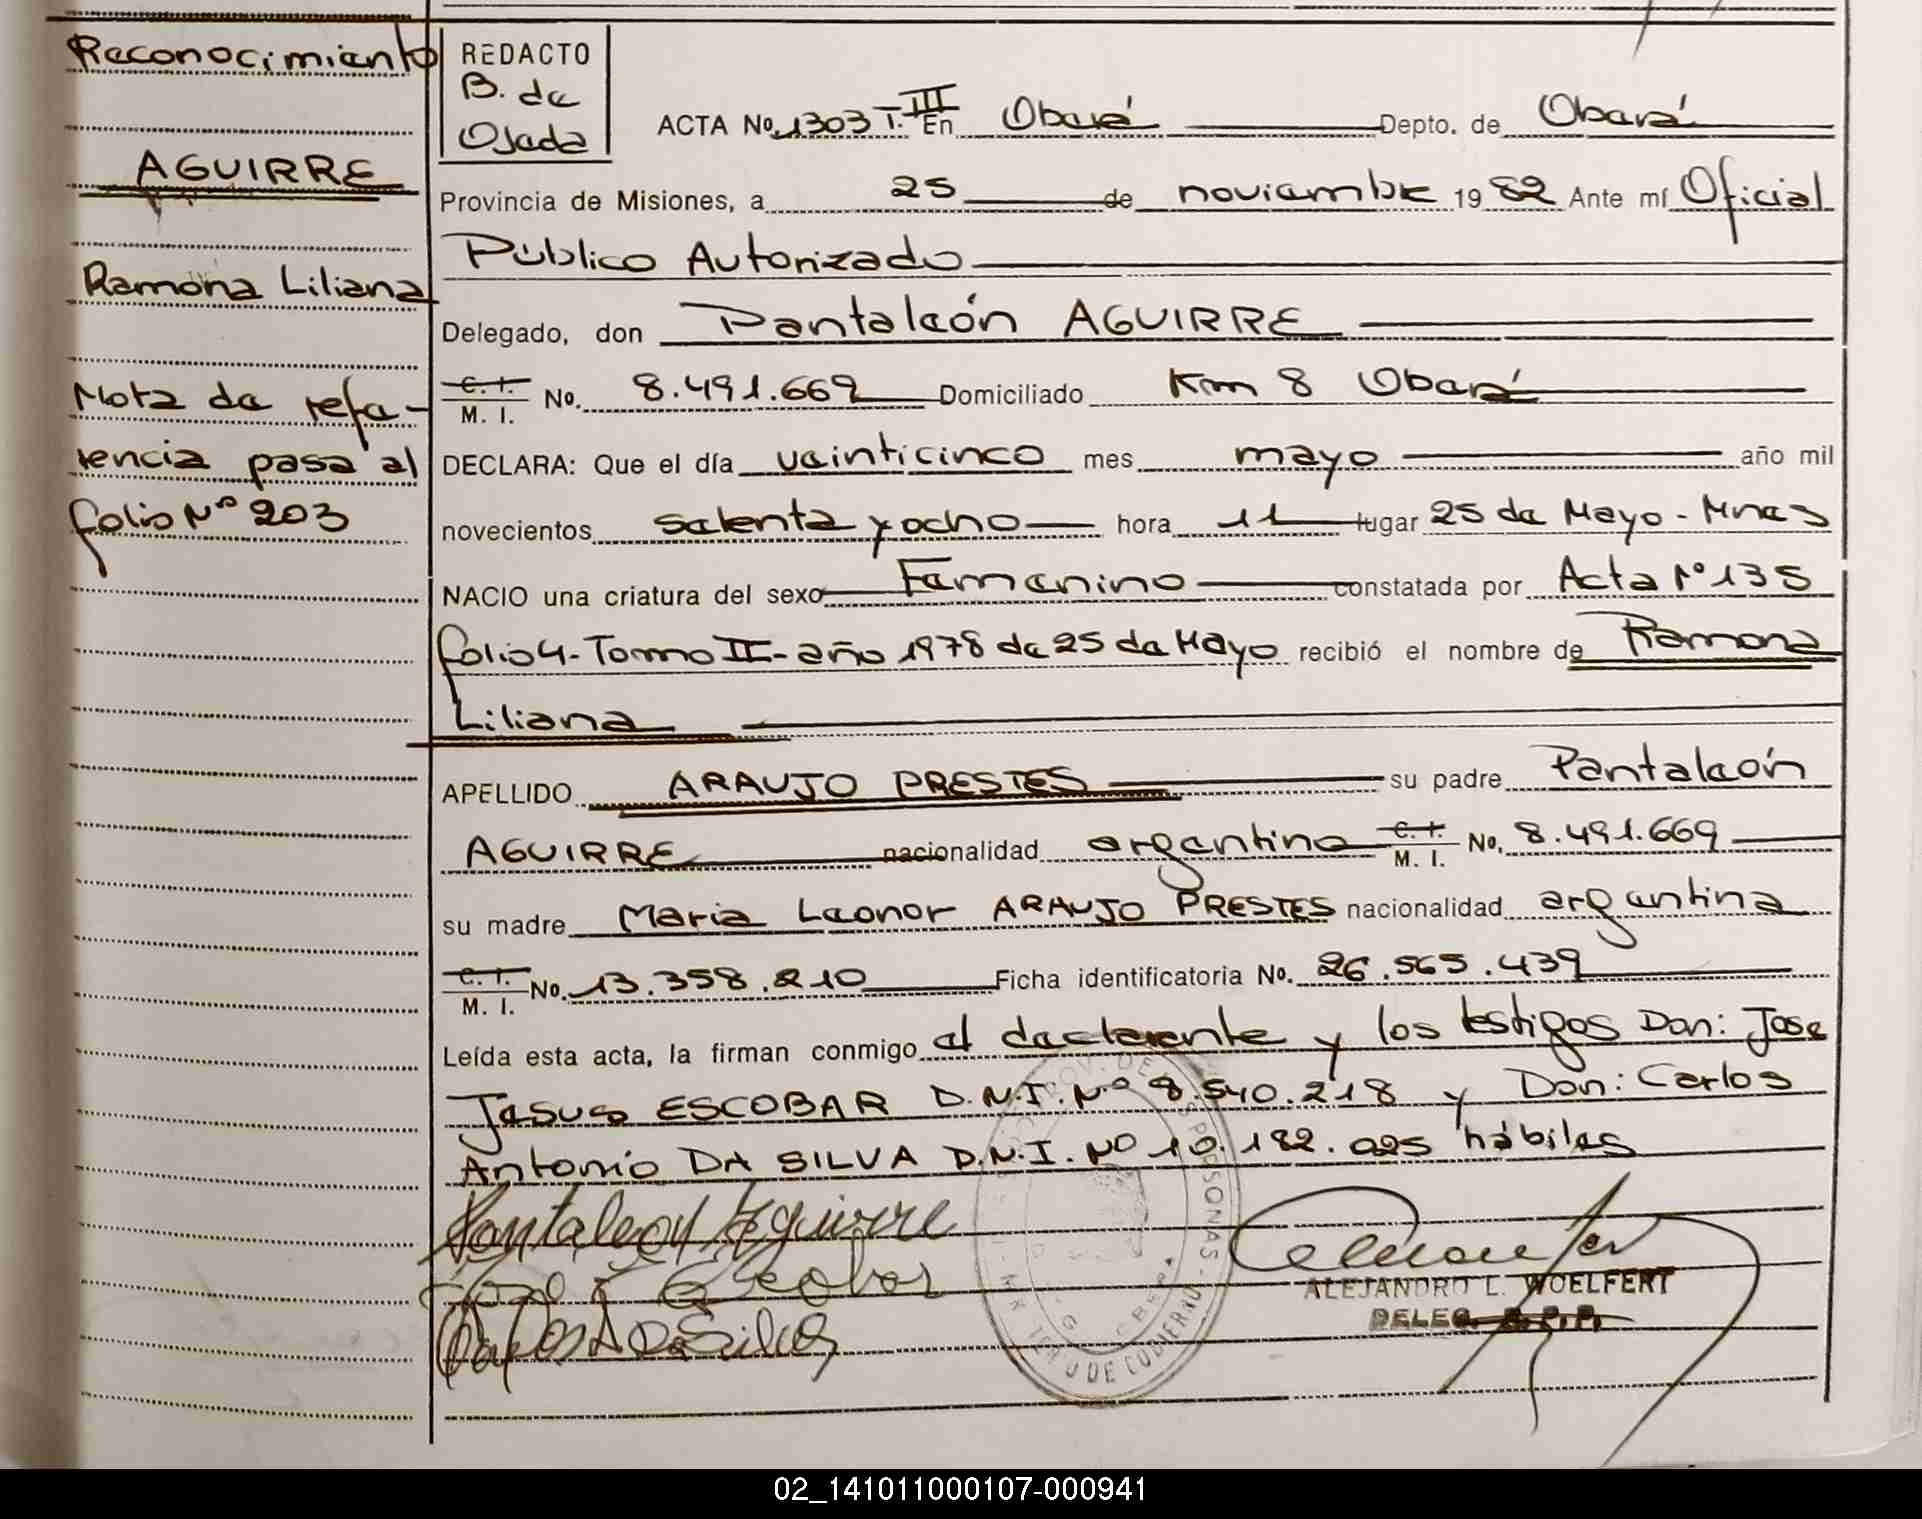 Reconocimiento
AGUIRRE
Ramona Liliana
Nota de refe-
rencia pasa al
folio Nº 203
REDACTO
B. de
Ojeda
ACTA No. 1303 T. III En Oberá Depto. de Oberá
Provincia de Misiones, a 25 de noviembre 19 82 Ante mí Oficial
Público Autorizado
Delegado, don Pantaleón AGUIRRE
C. I. M. I. No. 8.491.669 Domiciliado Km 8 Oberá
DECLARA: Que el día veinticinco mes mayo año mil
novecientos setenta y ocho hora 11 lugar 25 de Mayo - Mnes
NACIO una criatura del sexo Femenino constatada por Acta Nº 135
folio 4 - Tomo II - año 1978 de 25 de Mayo recibió el nombre de Ramona
Liliana
APELLIDO ARAUJO PRESTES su padre Pantaleón
AGUIRRE nacionalidad argentina C. I. M. I. No. 8.491.669
su madre Maria Leonor ARAUJO PRESTES nacionalidad argentina
C. I. M. I. No. 13.358.210 Ficha identificatoria No. 26.565.439
Leída esta acta, la firman conmigo el declarante y los testigos Don: Jose
Jesus ESCOBAR D.N.I. Nº 8.540.218 y Don: Carlos
Antonio DA SILVA D.N.I. Nº 10.182.025 hábiles
Pantaleon Aguirre
Jose J Escobar
Carlos A Da Silva
ALEJANDRO L. WOELFERT
DELEG. R.P.P.
02_141011000107-000941